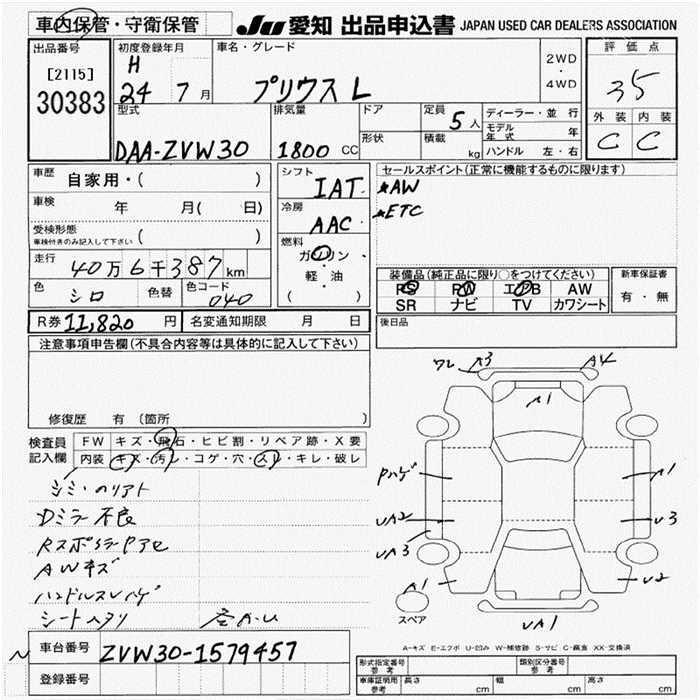 車内保管・守衛保管
JU 愛知 出品申込書 JAPAN USED CAR DEALERS ASSOCIATION
出品番号
[2115]
30383
初度登録年月
H
24 7 月
車名・グレード
プリウス L
2WD
・
4WD
評価点
35
外装 内装
C C
型式
DAA-ZVW30
排気量
1800 CC
ドア
形状
定員 5 人
積載 kg
ディーラー・並行
モデル年式 年
ハンドル 左・右
車歴 自家用・( )
車検 年 月( 日)
受検形態
車検付きのみ記入して下さい ( )
走行 40万6千387km
色 シロ
色替
色コード 040
シフト IAT
冷房 AAC
燃料
ガソリン
・
軽・油
( )
セールスポイント(正常に機能するものに限ります)
★AW
★ETC
装備品(純正品に限り○をつけてください)
PS PW エアB AW
SR ナビ TV カワシート
新車保証書
有・無
R券 11,820 円
名変通知期限 月 日
後日品
注意事項申告欄(不具合内容等は具体的に記入して下さい)
修復歴 有(箇所 )
検査員記入欄
FW キズ・飛石・ヒビ割・リペア跡・X要
内装 キズ・汚レ・コゲ・穴・スレ・キレ・破レ
Dミラー不良
AWキズ
ハンドルスレハゲ
シートヘタリ
ワレ A3
A4
A1
Pハゲ
A1
UA2
U3
UA3
A1
U2
UA1
スペア
A-キズ E-エクボ U-凹み W-補修跡 S-サビ C-腐食 XX-交換済
車台番号 ZVW30-1579457
登録番号
形式指定番号 参考
類別区分番号 参考
車庫証明用 参考
長さ cm
幅 cm
高さ cm